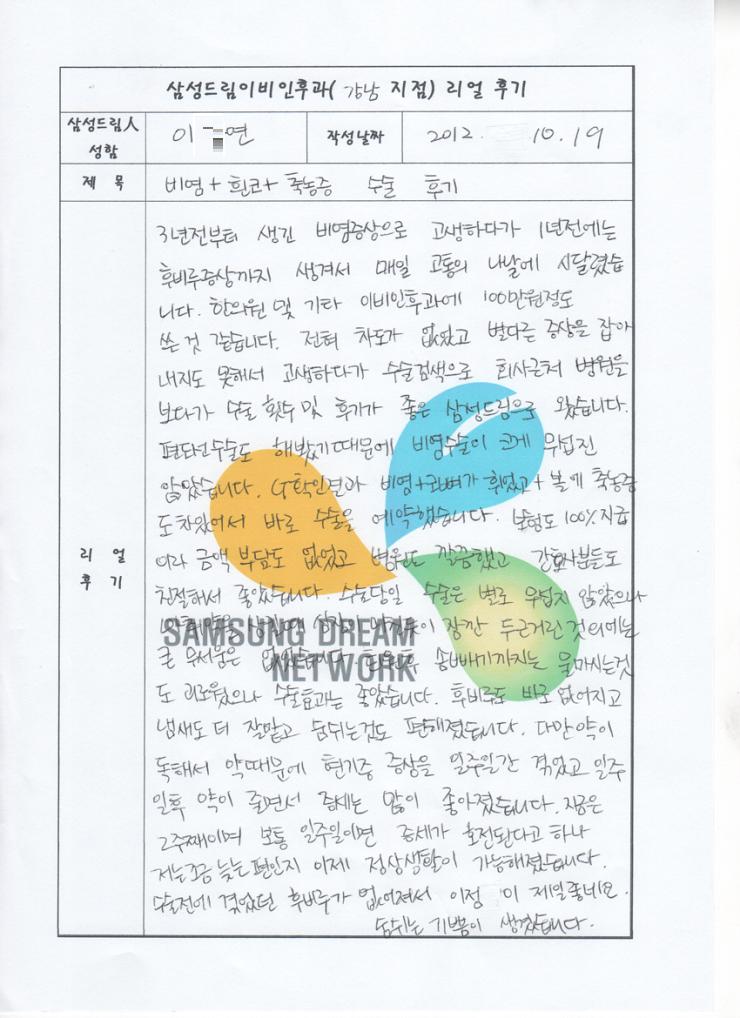 삼성드림이비인후과( 강남 지점) 리얼 후기
삼성드림人 성함
이 연
작성날짜
2012. 10. 19
제 목
비염 + 휜코 + 축농증 수술 후기
리 얼
후 기
3년전부터 생긴 비염증상으로 고생하다가 1년전에는
후비루증상까지 생겨서 매일 고통의 나날에 시달렸습
니다. 한의원 및 기타 이비인후과에 100만원정도
쓴 것 같습니다. 전혀 차도가 없었고 별다른 증상을 잡아
내지도 못해서 고생하다가 수술검색으로 회사근처 병원을
보다가 수술 횟수 및 후기가 좋은 삼성드림으로 왔습니다.
편도선수술도 해봤기때문에 비염수술이 크게 무섭진
않았습니다. CT확인결과 비염+코뼈가 휘었고+ 볼에 축농증
도 차있어서 바로 수술을 예약했습니다. 보험도 100% 지급
이라 금액 부담도 없었고 병원도 깔끔했고 간호사분들도
친절해서 좋았습니다. 수술당일 수술은 별로 무섭지 않았으나
잠깐 두근거린 것 외에는
큰 무서움은 없었습니다. 솜빼기까지는 물마시는것
도 괴로웠으나 수술효과는 좋았습니다. 후비루도 바로 없어지고
냄새도 더 잘맡고 숨쉬는것도 편해졌습니다. 다만 약이
독해서 약때문에 현기증 증상을 일주일간 겪었고 일주
일후 약이 줄면서 증세는 많이 좋아졌습니다. 지금은
2주째이며 보통 일주일이면 증세가 호전된다고 하나
저는조금 늦는 편인지 이제 정상생활이 가능해졌습니다.
수술전에 겪었던 후비루가 없어져서 이점 이 제일좋네요.
숨쉬는 기쁨이 생겼습니다.
SAMSUNG DREAM
NETWORK